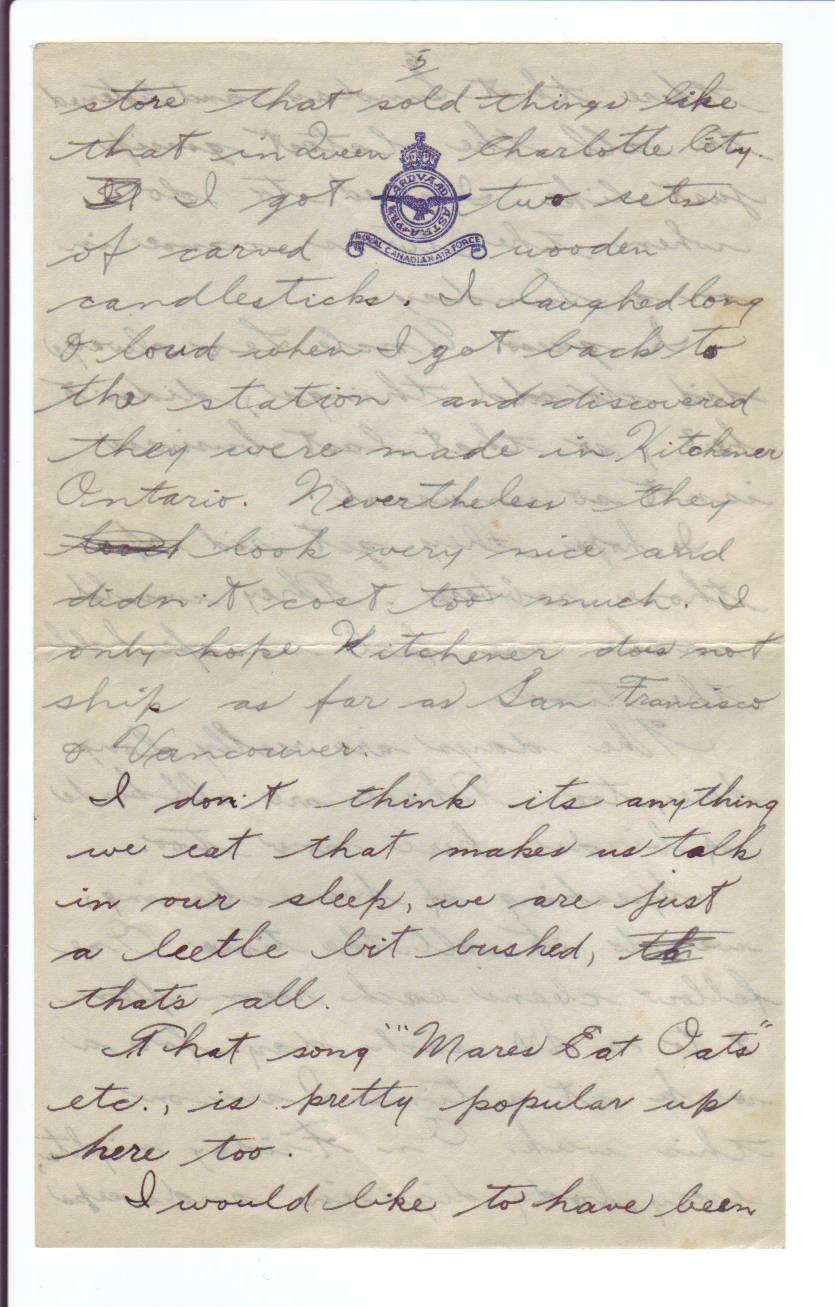 5
store that sold things like
that in Queen Charlotte City.
I got two sets
of carved wooden
PER ARDVA AD ASTRA
ROYAL CANADIAN AIR FORCE
candlesticks. I laughed long
& loud when I got back to
the station and discovered
they were made in Kitchener
Ontario. Nevertheless they
look very nice and
didn't cost too much. I
only hope Kitchener does not
ship as far as San Francisco
& Vancouver.
I don't think its anything
we eat that makes us talk
in our sleep, we are just
a leetle bit bushed,
thats all.
That song "Mares Eat Oats"
etc., is pretty popular up
here too.
I would like to have been